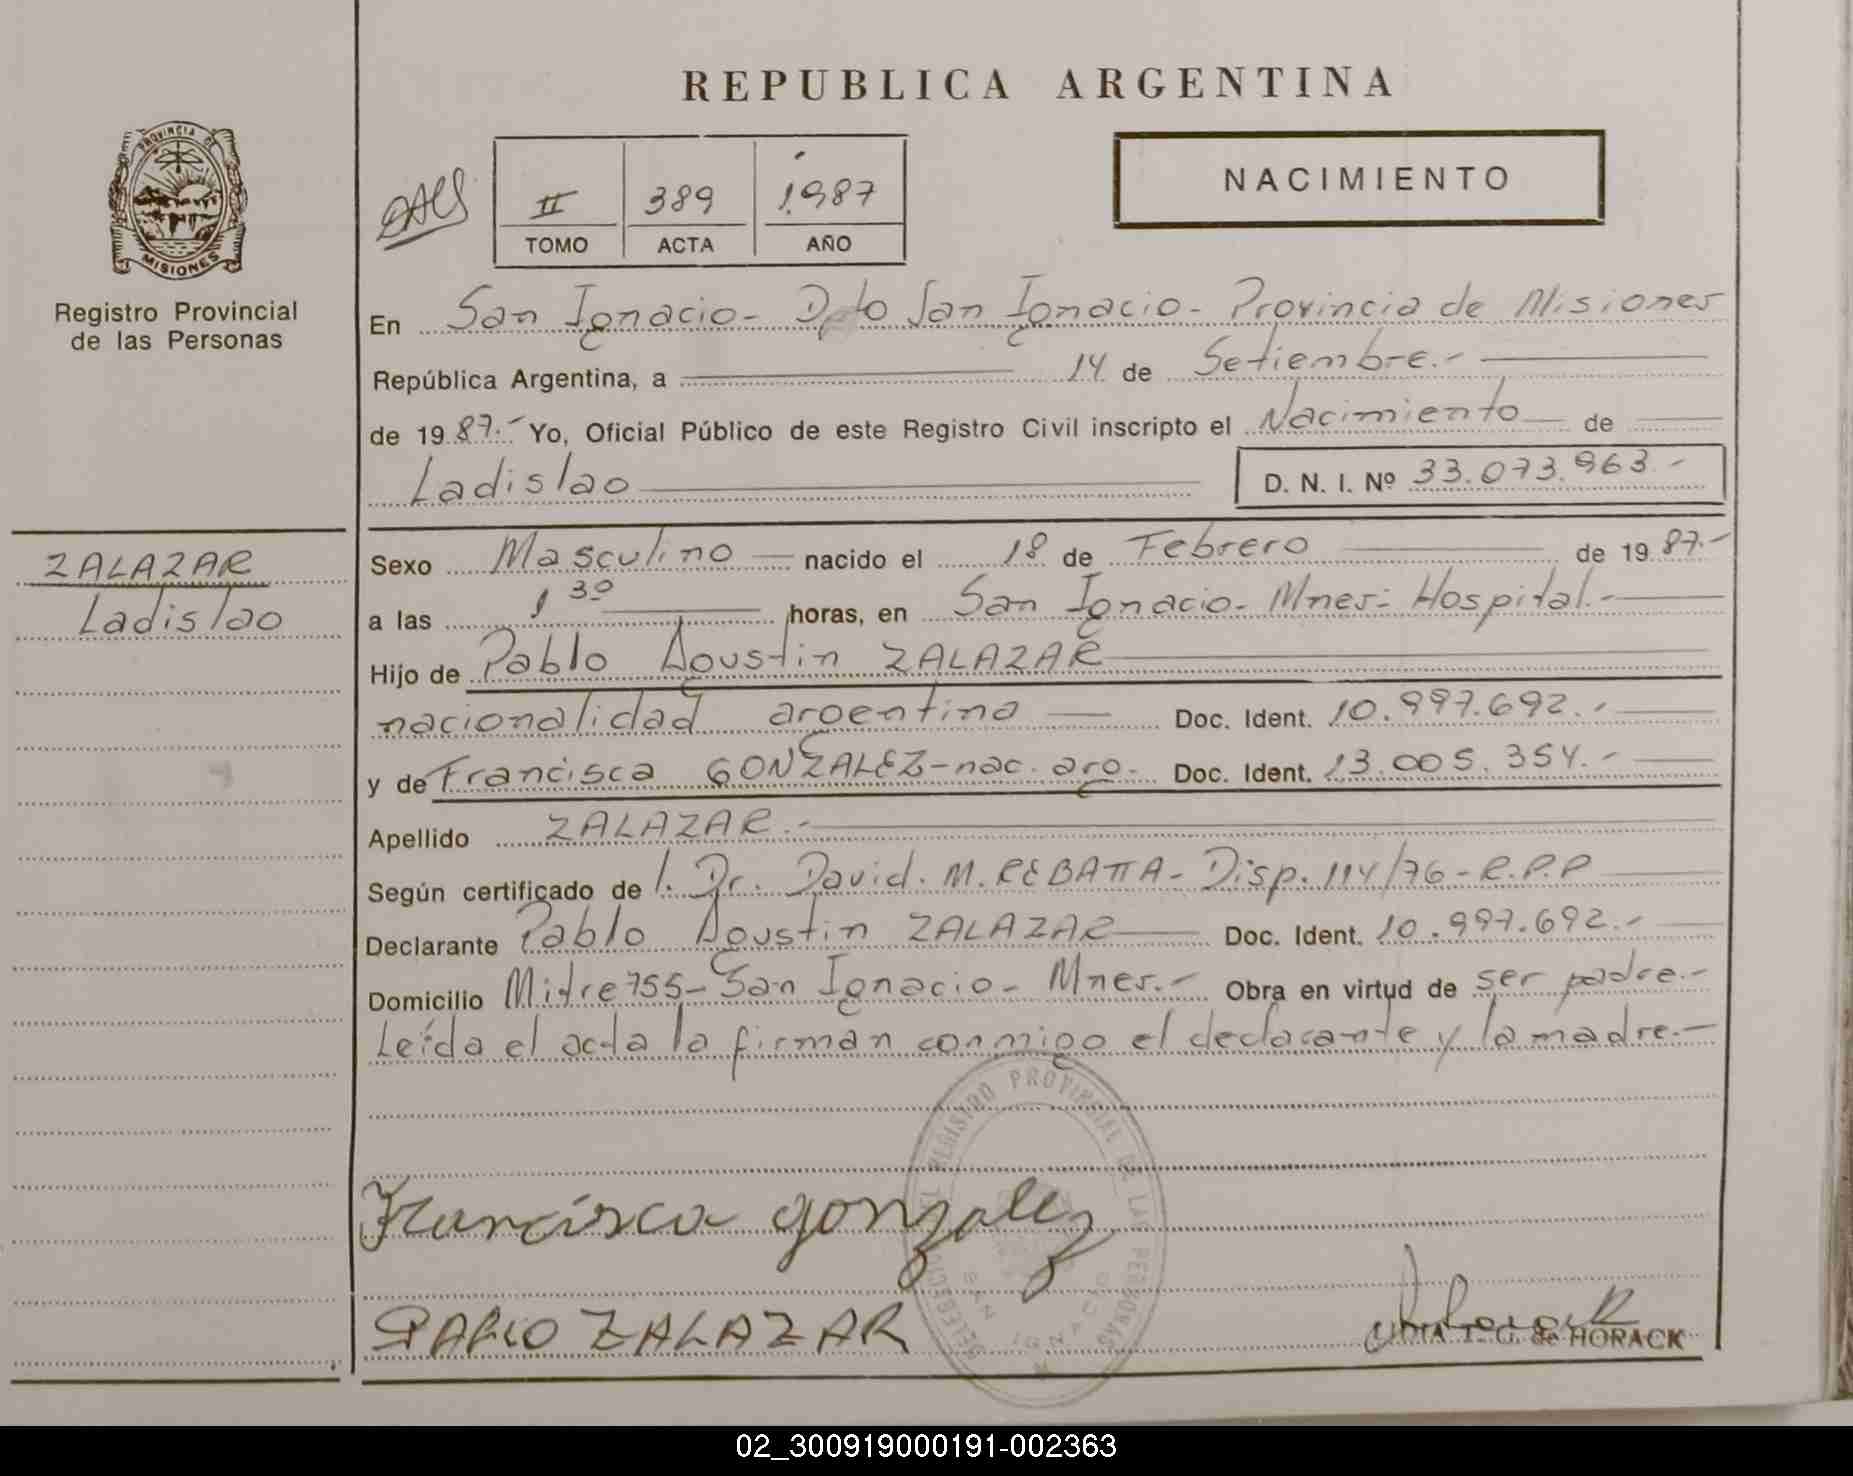 REPUBLICA ARGENTINA
PROVINCIA DE
MISIONES
Registro Provincial
de las Personas
II 389 1.987
TOMO ACTA AÑO
NACIMIENTO
En San Ignacio - Dpto San Ignacio - Provincia de Misiones
República Argentina, a 14 de Setiembre.-
de 1987.- Yo, Oficial Público de este Registro Civil inscripto el Nacimiento de
Ladislao D. N. I. Nº 33.073.963.-
ZALAZAR
Ladislao
Sexo Masculino nacido el 18 de Febrero de 1987.-
a las 1 30 horas, en San Ignacio - Mnes.- Hospital.-
Hijo de Pablo Agustin ZALAZAR
nacionalidad argentina Doc. Ident. 10.997.692.-
y de Francisca GONZALEZ - nac. arg. Doc. Ident. 13.005.354.-
Apellido ZALAZAR.-
Según certificado de Dr. David. M. REBATTA - Disp. 114/76 - R.P.P
Declarante Pablo Agustin ZALAZAR Doc. Ident. 10.997.692.-
Domicilio Mitre 755 - San Ignacio - Mnes.- Obra en virtud de ser padre.-
Leída el acta la firman conmigo el declarante y la madre.-
REGISTRO PROVINCIAL DE LAS PERSONAS
SAN IGNACIO
Francisca gonzalez
PABLO ZALAZAR
de HORACK
02_300919000191-002363